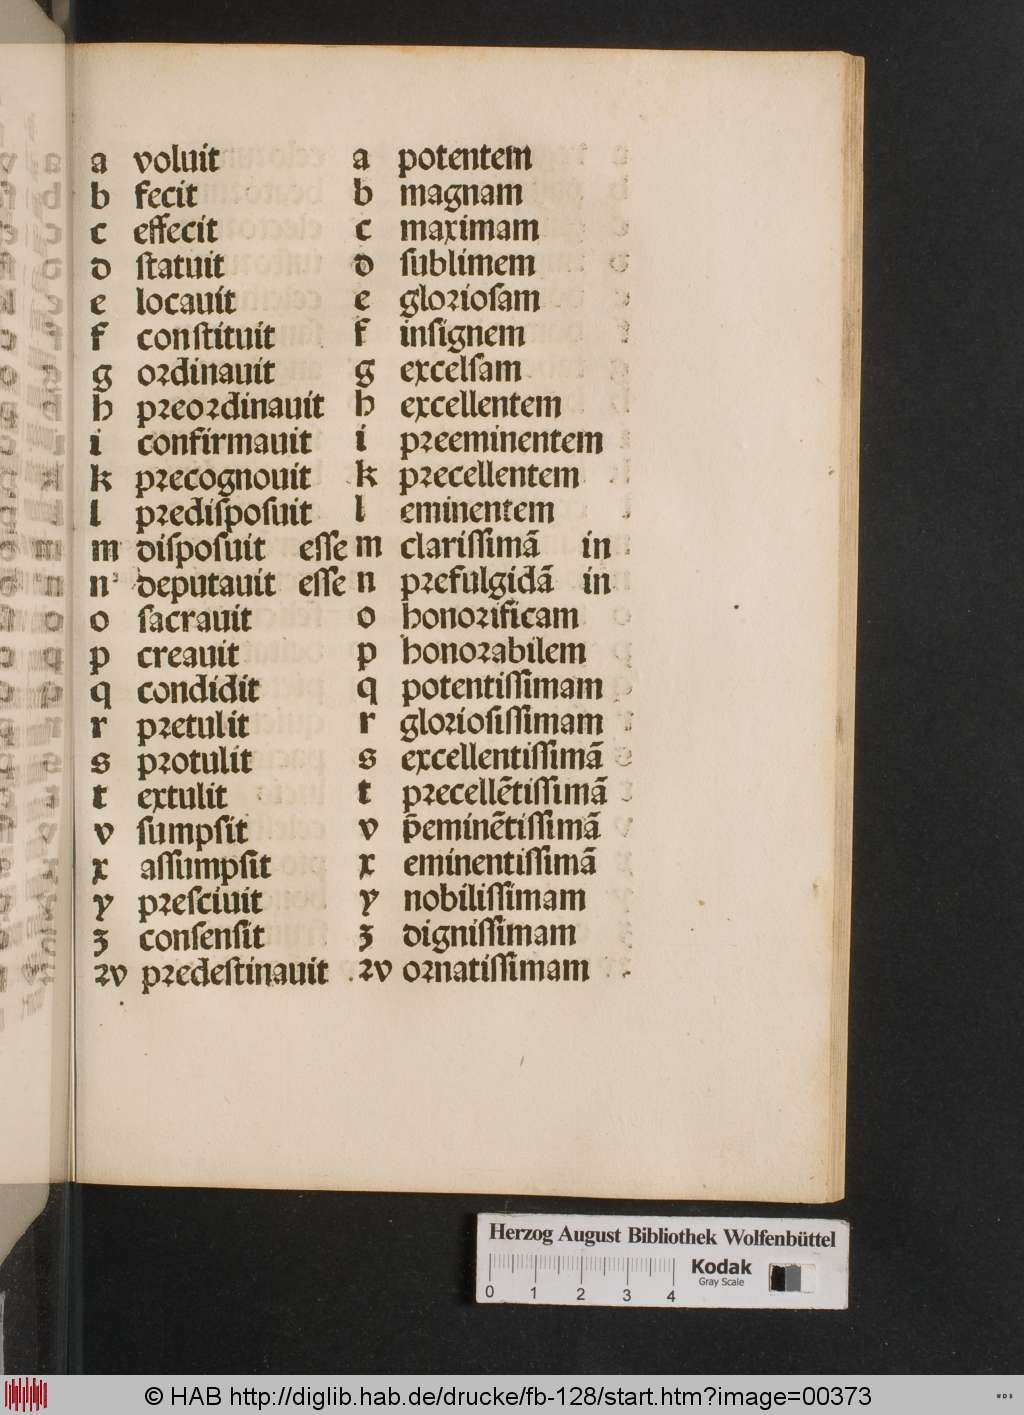 a voluit a potentem
b fecit b magnam
c effecit c maximam
d ſtatuit d ſublimem
e locauit e glorioſam
f conſtituit f inſignem
g ordinauit g excelſam
h preordinauit h excellentem
i confirmauit i preeminentem
k precognouit k precellentem
l prediſpoſuit l eminentem
m diſpoſuit eſſe m clariſſimã in
n deputauit eſſe n prefulgidã in
o ſacrauit o honorificam
p creauit p honorabilem
q condidit q potentiſſimam
r pretulit r glorioſiſſimam
s protulit s excellentiſſimã
t extulit t precellẽtiſſimã
v ſumpſit v p̄eminẽtiſſimã
x aſſumpſit x eminentiſſimã
y preſciuit y nobiliſſimam
ʒ conſenſit ʒ digniſſimam
ꝛv predeſtinauit ꝛv ornatiſſimam
Herzog August Bibliothek Wolfenbüttel
Kodak
Gray Scale
0 1 2 3 4
© HAB http://diglib.hab.de/drucke/fb-128/start.htm?image=00373